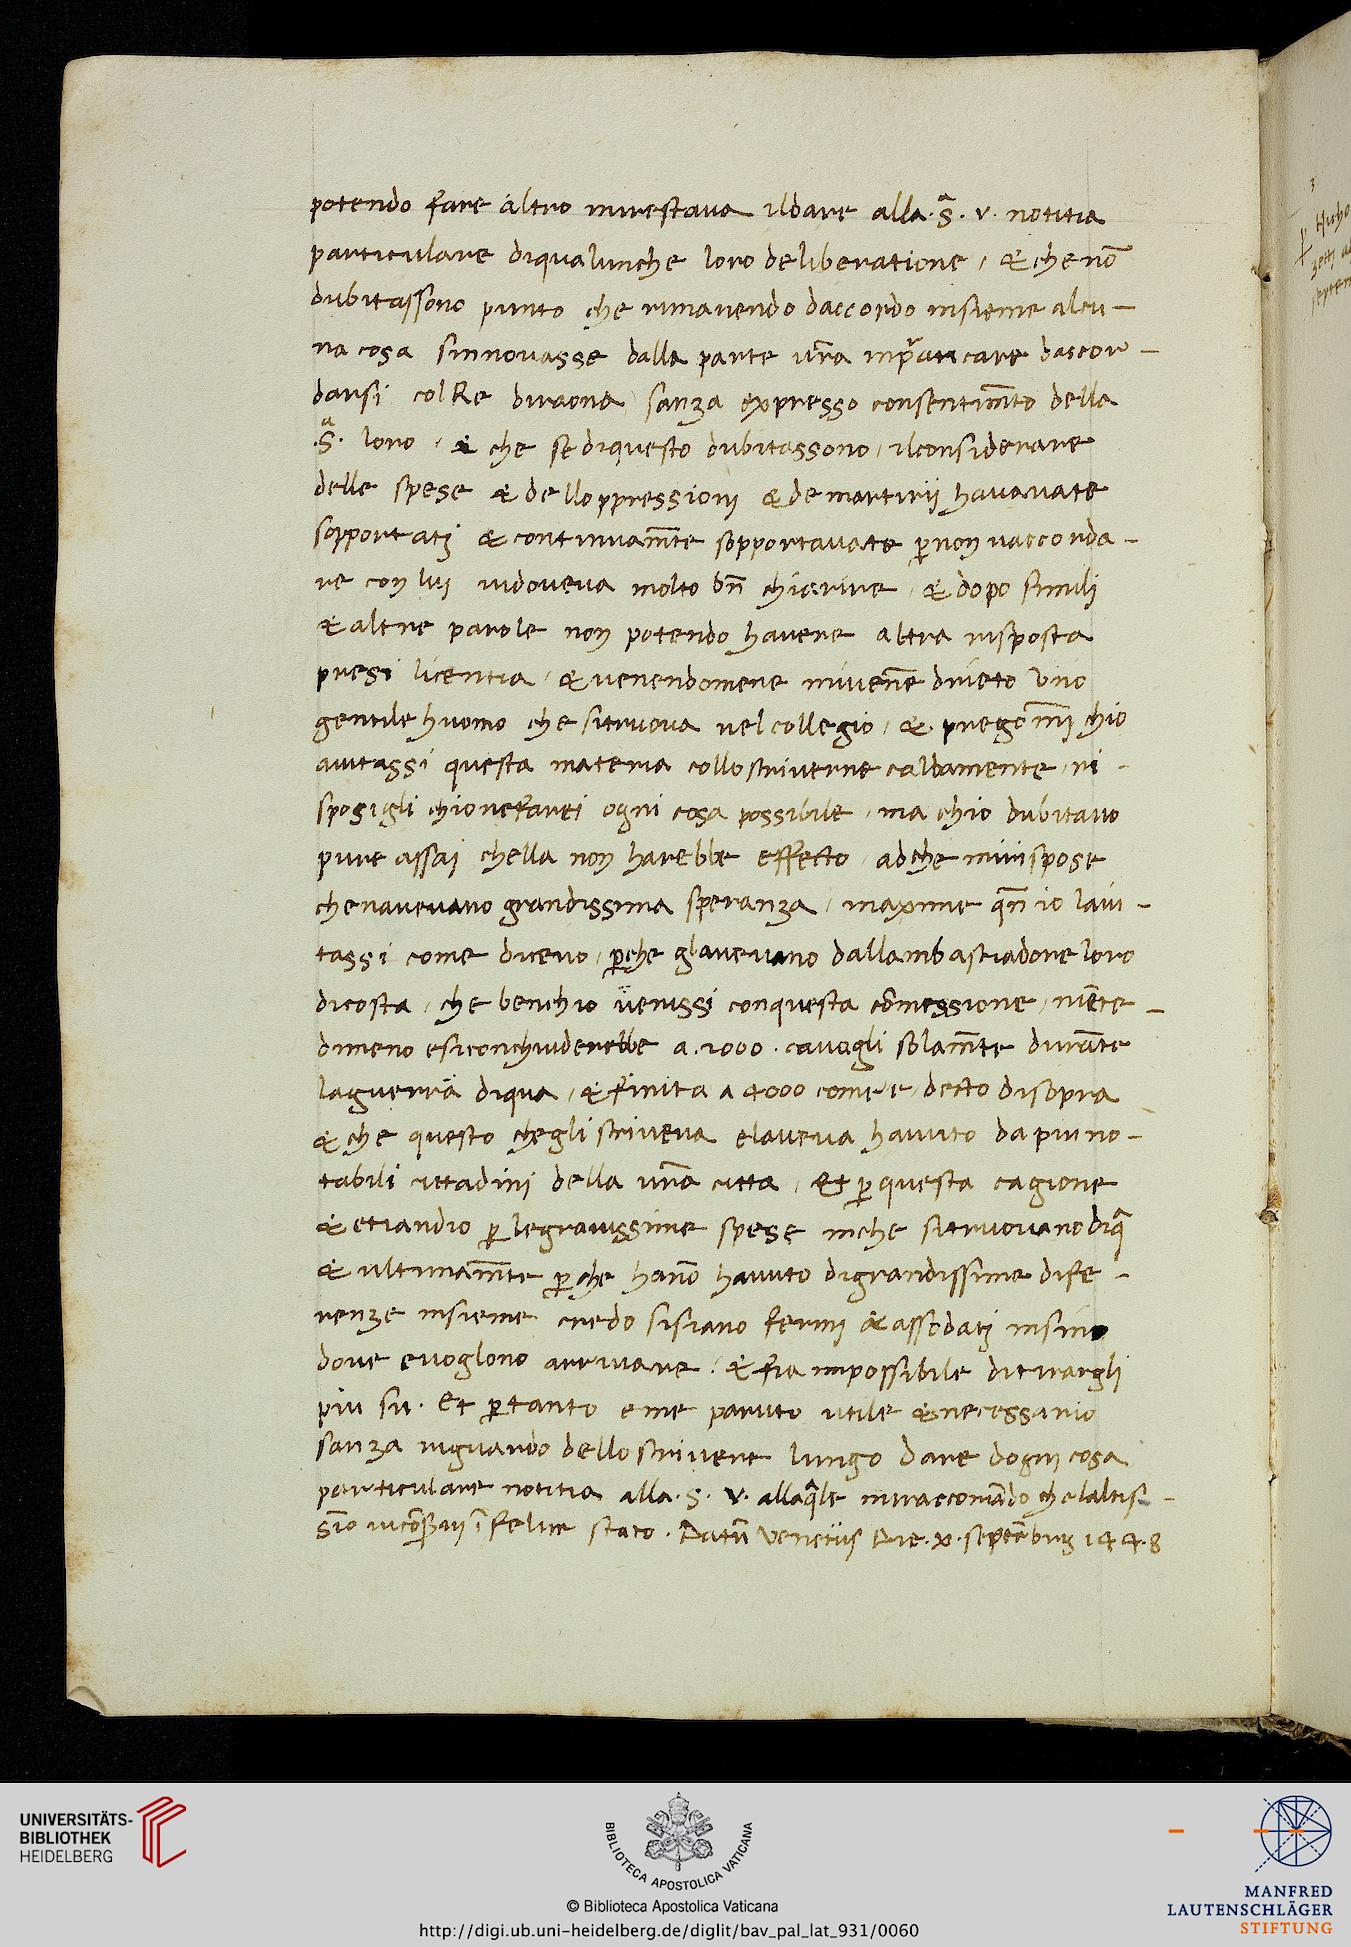 potendo fare altro mirestava ildare alla .S.ª v. notitia
particulare diqualunche loro deliberatione / & che no͂
dubitassono punto che rimanendo daccordo insieme alcu-
na cosa sinnovasse dalla parte vr͂a in praticare daccor-
darsi colRe diraona / sanza expresso consentim͂to della
.S.ª loro / & che se diquesto dubitassono / ilconsiderare
delle spese & delloppressioni & de martirii havavate
sopportatj & continuam͂te sopportavate p̱ non vaccorda-
re con luj vidoveva molto bn͂ chiarire / & dopo similj
& altre parole non potendo havere altra risposta
presi licentia / & venendomene mivene͂ drieto uno
gentile huomo che sitruova nel collegio / & pregom͂i chio
aiutassi questa materia colloscriverne caldamente / ri-
sposigli chionefarei ogni cosa possibile / ma chio dubitavo
pure assaj chella non harebbe effecto / adche mirispose
chenavevano grandissima speranza / maxime qn͂ io laiu-
tassi come dicevo / p̱che glavevano dallambasciadore loro
dicosta / che benchio venissi conquesta co͂messione / nie͂te-
dimeno esiconchiuderebbe a .2000. cavagli solam͂te dura͂te
laguerra diqua / & finita a 4000 come e decto disopra
& che questo chegli scriveva elaveva havuto da piu no-
tabili cittadini della vr͂a citta / Et p̱ questa cagione
& etiandio p̱ legravissime spese inche sitruovano diqª
& ultimam͂te p̱che han͂o havuto digrandissime dife-
renze insieme credo sisiano fermj & assodatj insino
dove evoglono arrivare / & fia impossibile ditirargli
piu su. Et p̱tanto eme paruto utile & necessario
sanza riguardo delloscrivere lungo dare dognj cosa
particulare notitia alla .S. V. allaqªle miraccoma͂do chelaltis-
sio͂ vico͂servi i͂ felice stato. Datu͂ Venetiis Die .x. septe͂bris 1448